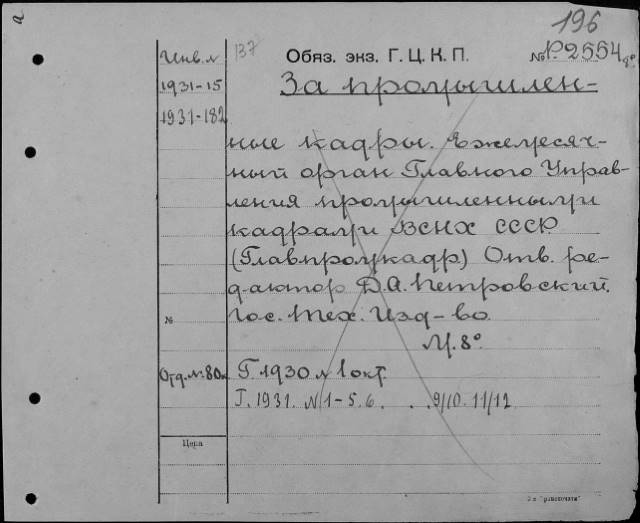 а
196
Инв. №
137
Обяз. экз. Г. Ц. К. П.
№ P.2554 8°
1931-15
За промышлен-
1931-182
ные кадры. Ежемесяч-
ный орган Главного Управ-
ления промышленными
кадрами ВСНХ СССР.
(Главпромкадр) Отв. ре-
дактор Д.А. Петровский.
Гос. Тех. Изд-во.
№
М. 8°.
Отд. м. 80к
Г. 1930 № 1 окт.
Г. 1931. № 1-5. 6. . . 9/10. 11/12
Цена